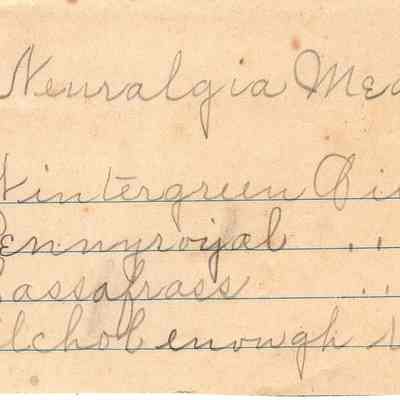 Neuralgia Med
Wintergreen Oi
Pennyroyal . .
Sassafrass . .
Alchol enough